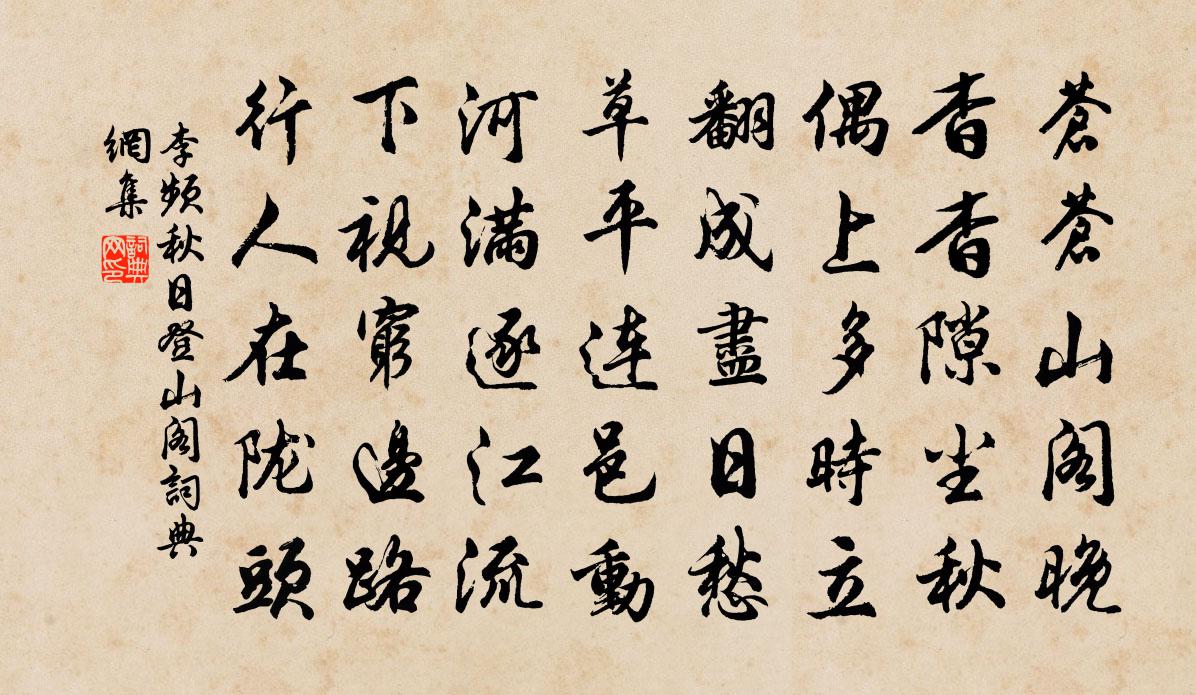 蒼蒼山閣晚
杳杳隙尘秋
偶上多時立
翻成盡日愁
草平連邑動
河滿逐江流
下視窮邊路
行人在陇頭
李頻秋日登山閣詞典
網集
詞典
网印